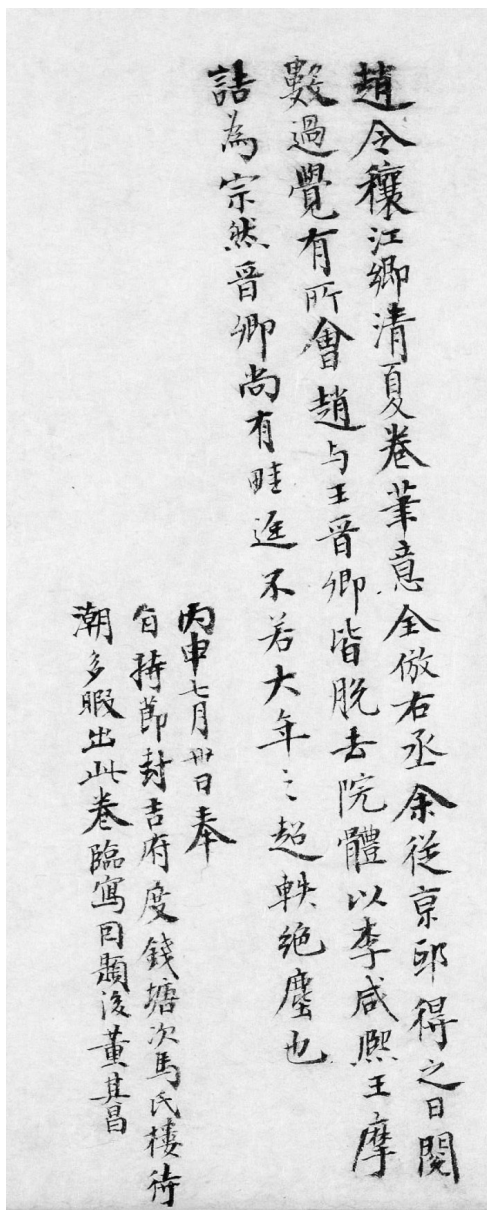 趙令穰江鄉清夏卷筆意全倣右丞余從京邸得之日閱
數過覺有所會趙与王晉卿皆脫去院體以李咸熙王摩
詰為宗然晉卿尚有畦逕不若大年之超軼絕塵也
丙申七月卅日奉
旨持節封吉府度錢塘次馬氏樓待
潮多暇出此卷臨寫因題後董其昌